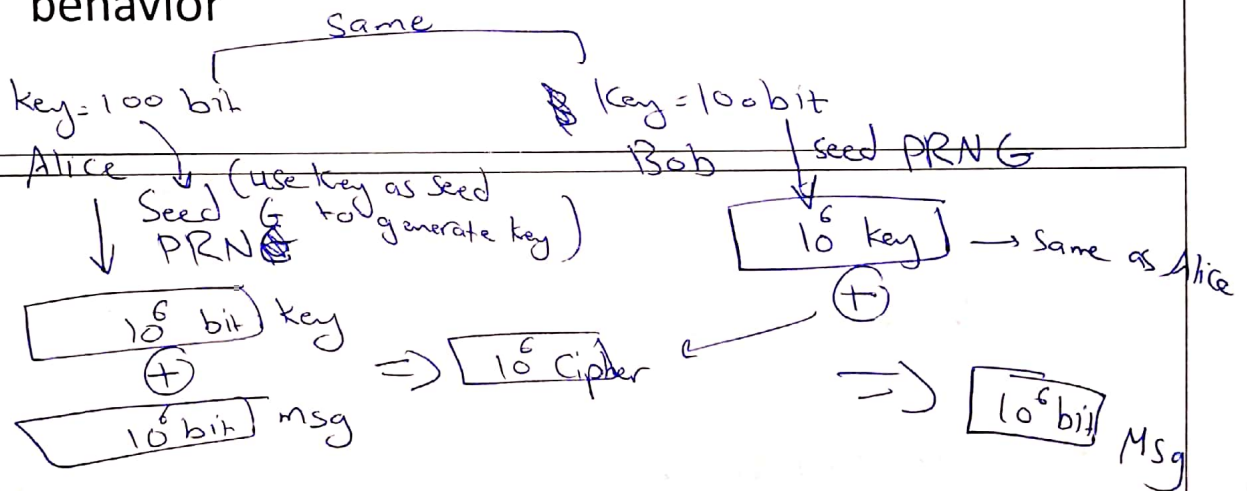 behavior
Same
key=100 bit
Key=100bit
Alice
Bob
seed PRNG
Seed (use key as seed
PRNG to generate key)
10⁶ key → Same as Alice
⊕
10⁶ bit key
⊕
10⁶ bit msg
⇒ 10⁶ Cipher
⇒ 10⁶ bit Msg